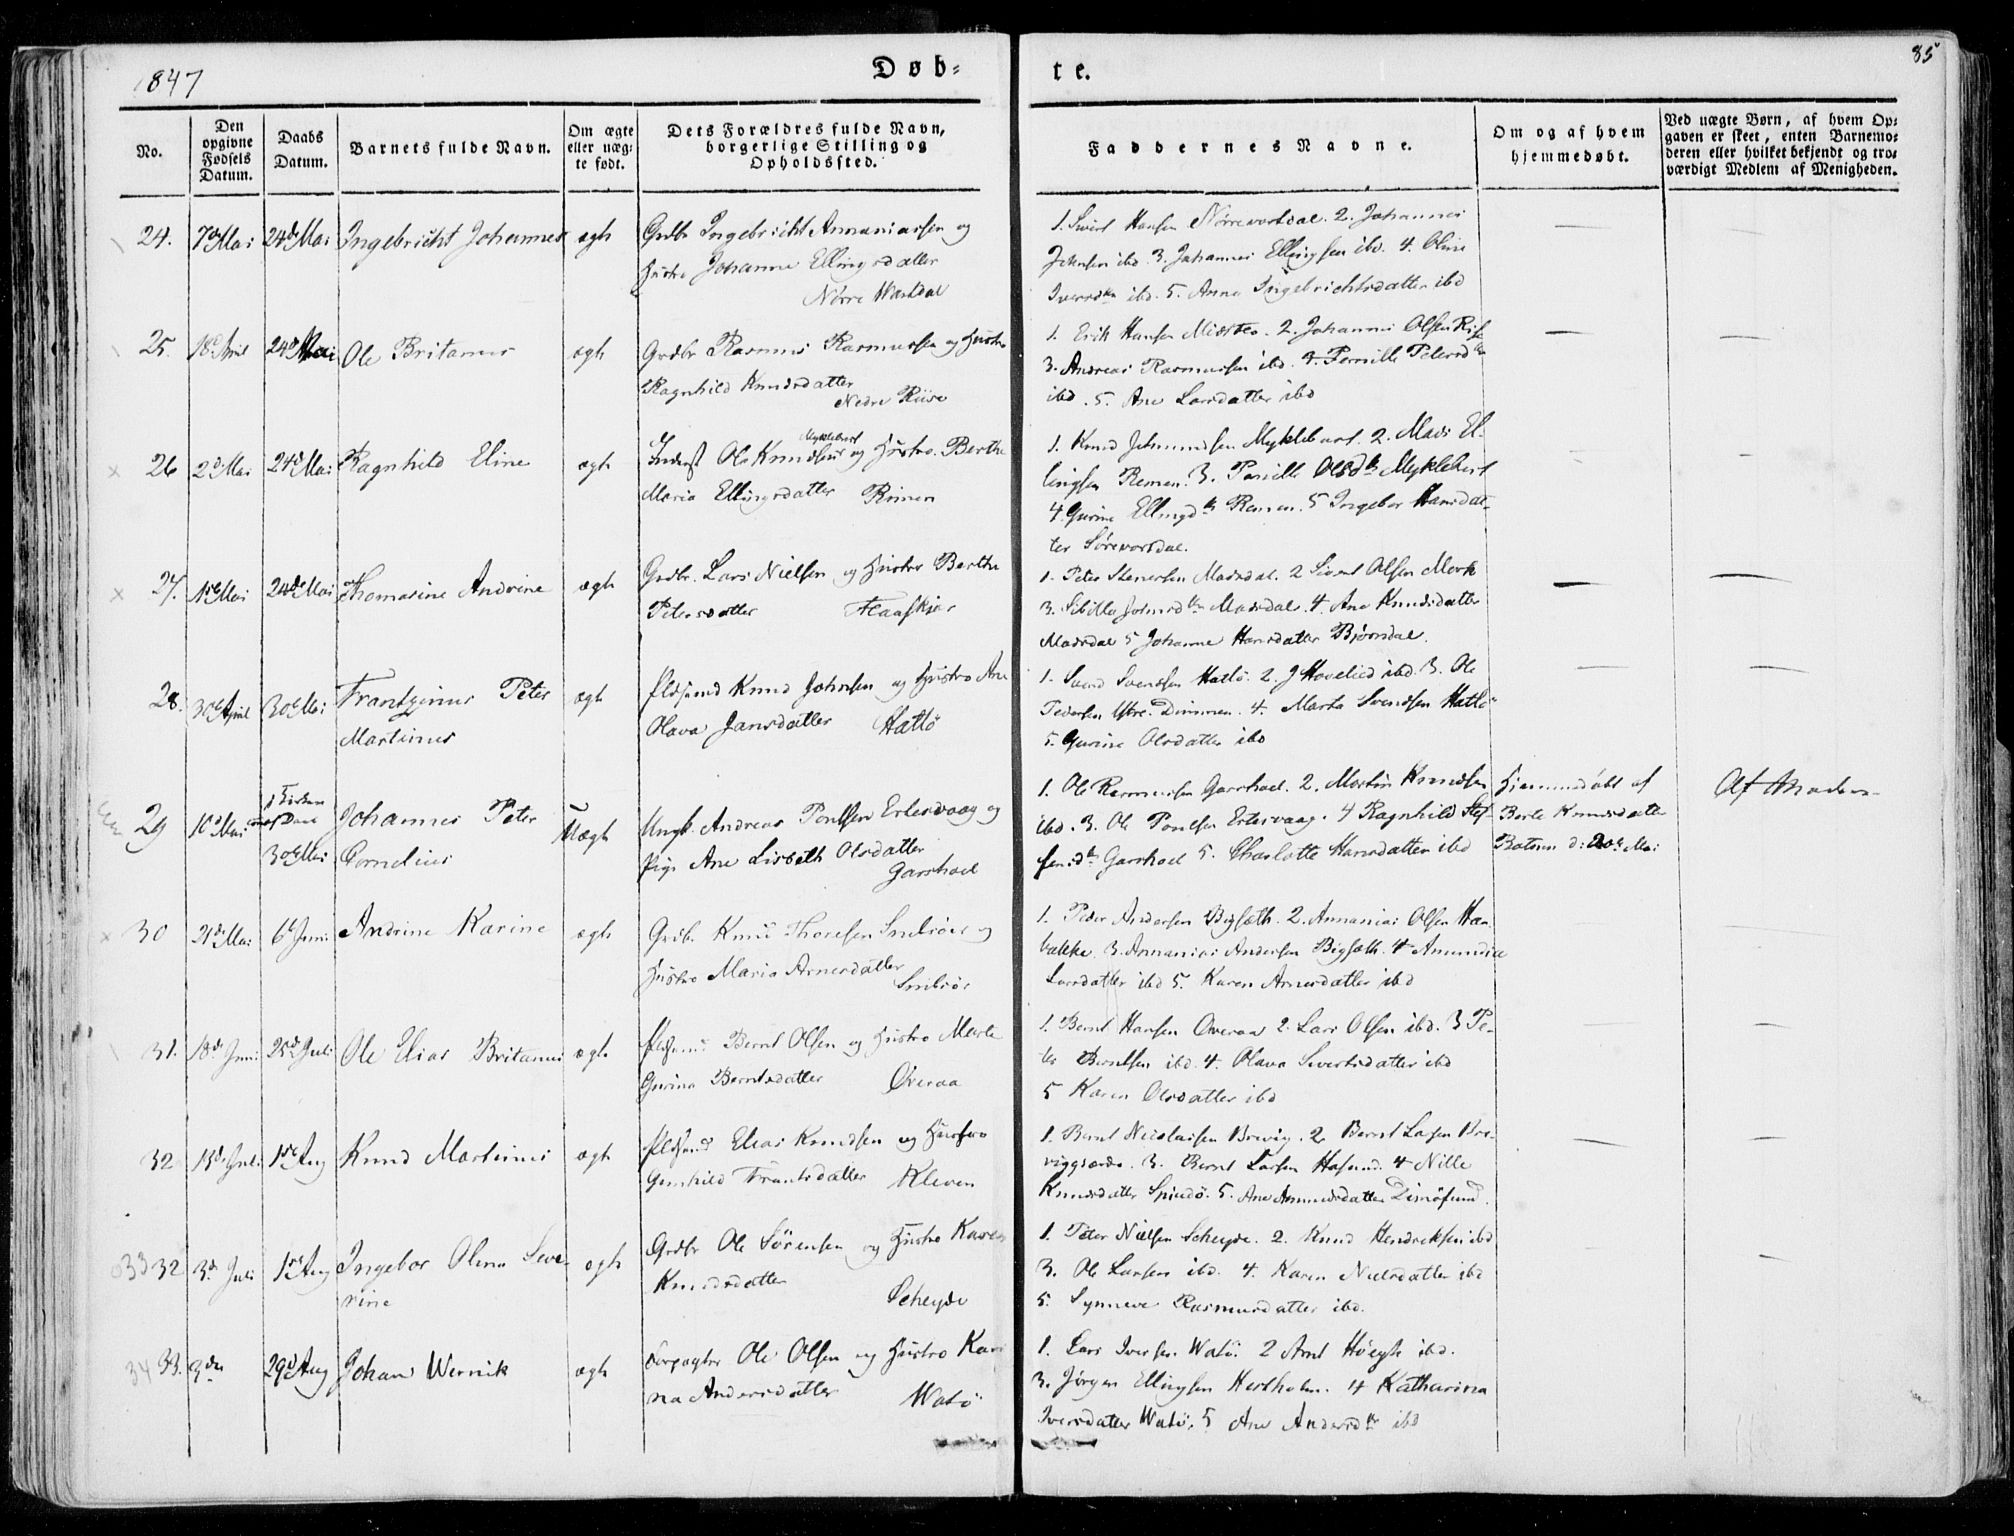 1847
Døb=
te.
85
No.
Den opgivne Fødsels Datum.
Daabs Datum.
Barnets fulde Navn.
Om ægte eller uæg- te født.
Dets Forældres fulde Navn, borgerlige Stilling og Opholdssted.
Faddernes Navne.
Om og af hvem hjemmedøbt.
Ved uægte Børn, af hvem Op- gaven er skeet, enten Barnemo- deren eller hvilket bekjendt og tro- værdigt Medlem af Menigheden.
24. 7de Mai 24de Mai Ingebricht Johannes ægte
Grdbr Ingebricht Annaniassen og
Hustro Johanne Ellingsdatter
Nørre Wartdal
1. Sivert Hansen Nørrevartdal. 2. Johannes
Johnsen ibd. 3. Johannes Ellingsen ibd. 4. Oline
Iversdtr ibd. 5. Anne Ingebrichtsdatter ibd
25. 18de April 24de Mai Ole Britanus ægte
Grdbr Rasmus Rasmussen og Hustro
Ragnhild Knudsdatter
Nedre Riise
1. Erik Hansen 2. Johannes Olsen Rise
3. Andreas Rasmussen ibd. 4. Pernille Petersdtr
ibd. 5. Ane Larsdatter ibd
26 2de Mai 24de Mai Ragnhild Eline ægte
Inderst Ole Knudsen Myklebust og Hustro Berthe
Maria Ellingsdatter Rimen
1. Knud Johnsen Myklebust. 2. Mads El-
lingsen Remen. 3. Pernille Olsdtr Myklebust
4. Gurine Ellingsdtr Remen. 5 Ingebor Hansdat-
ter Sørevartdal.
27. 1ste Mai 24de Mai Thomasine Andrine ægte
Grdbr. Lars Nielsen og Hustro Berthe
Petersdatter Flaaskjær
1. Peter Stenersen Madsdal. 2 Sivert Olsen Mork
3. Sibilla Madsdal. 4. Ane Knudsdatter
Madsdal 5 Johanne Hansdatter Bjørndal.
28. 30te April 30te Mai Frantzinus Peter ægte
Martinus
Plds­mand Knud Johnsen og Hustro Ane
Olava Jansdatter Hatlø
1. Svend Svendsen Hatlø. 2. J Hovelied ibd. 3. Ole
Pedersen Ytre Dimmen. 4. Marta Svendsen Hatlø
5. Gurine Olsdatter ibd
29 10de Mai 30te Mai Johannes Peter Uægte
Cornelius
Ungk. Andreas Poulsen Ertesvaag og
Pige Ane Lisbeth Olsdatter
Garshoel
1. Ole Rasmussen Garshoel. 2. Martin Knudsen
ibd. 3. Ole Poulsen Ertesvaag. 4 Ragnhild Stef-
fensdtr Garshoel 5. Charlotte Hansdatter ibd
Hjemmedøbt af
Berte Knudsdatter
Botnen d: 20de Mai
Af Moderen
30 21de Mai 6te Juni Andrine Karine ægte
Grdbr Knud Thoresen og
Hustro Maria Arnesdatter
1. Peder Andersen Bigsæth. 2. Annanias Olsen Hau-
bakke. 3. Annanias Andersen Bigsæth. 4
Larsdatter ibd 5. Karen Arnesdatter ibd
31. 18de Juni 25de Juli Ole Elias Britanus ægte
Bernt Olsen og Hustro Marte
Gurina Berntsdatter Øveraa
1. Bernt Hansen Øveraa 2. Lars Olsen ibd. 3 Pe-
ter Berntsen ibd. 4. Olava Sivertsdatter ibd
5 Karen Olsdatter ibd
32 13de Juli 1ste Aug Knud Martinus ægte
Elias Knudsen og Hustro
Gunhild Frantsdatter Kleven
1. Bernt Nicolaisen Brevig. 2. Bernt Larsen
3. Bernt Larsen Hasund. 4 Nille
Knudsdatter 5. Ane
33 32 3de Juli 1ste Aug Ingebor Olina Seve- ægte
rine
Grdbr Ole Sörensen og Hustro Karen
Knudsdatter
Scheyde
1. Peter Nielsen Scheyde. 2. Knud Hendriksen ibd
3. Ole Larsen ibd. 4. Karen Nielsdatter ibd
5. Synneve Rasmusdatter ibd.
34 33. 3de 29de Aug Johan Wernik ægte
Forpagter Ole Olsen og Hustro Kari-
na Andersdatter Watö
1. Lars Iversen Watö. 2 Arnt ibd.
3. Jørgen Ellingsen Hestholm. 4 Katharina
Iversdatter Watö. 5 Ane Andersdtr ibd